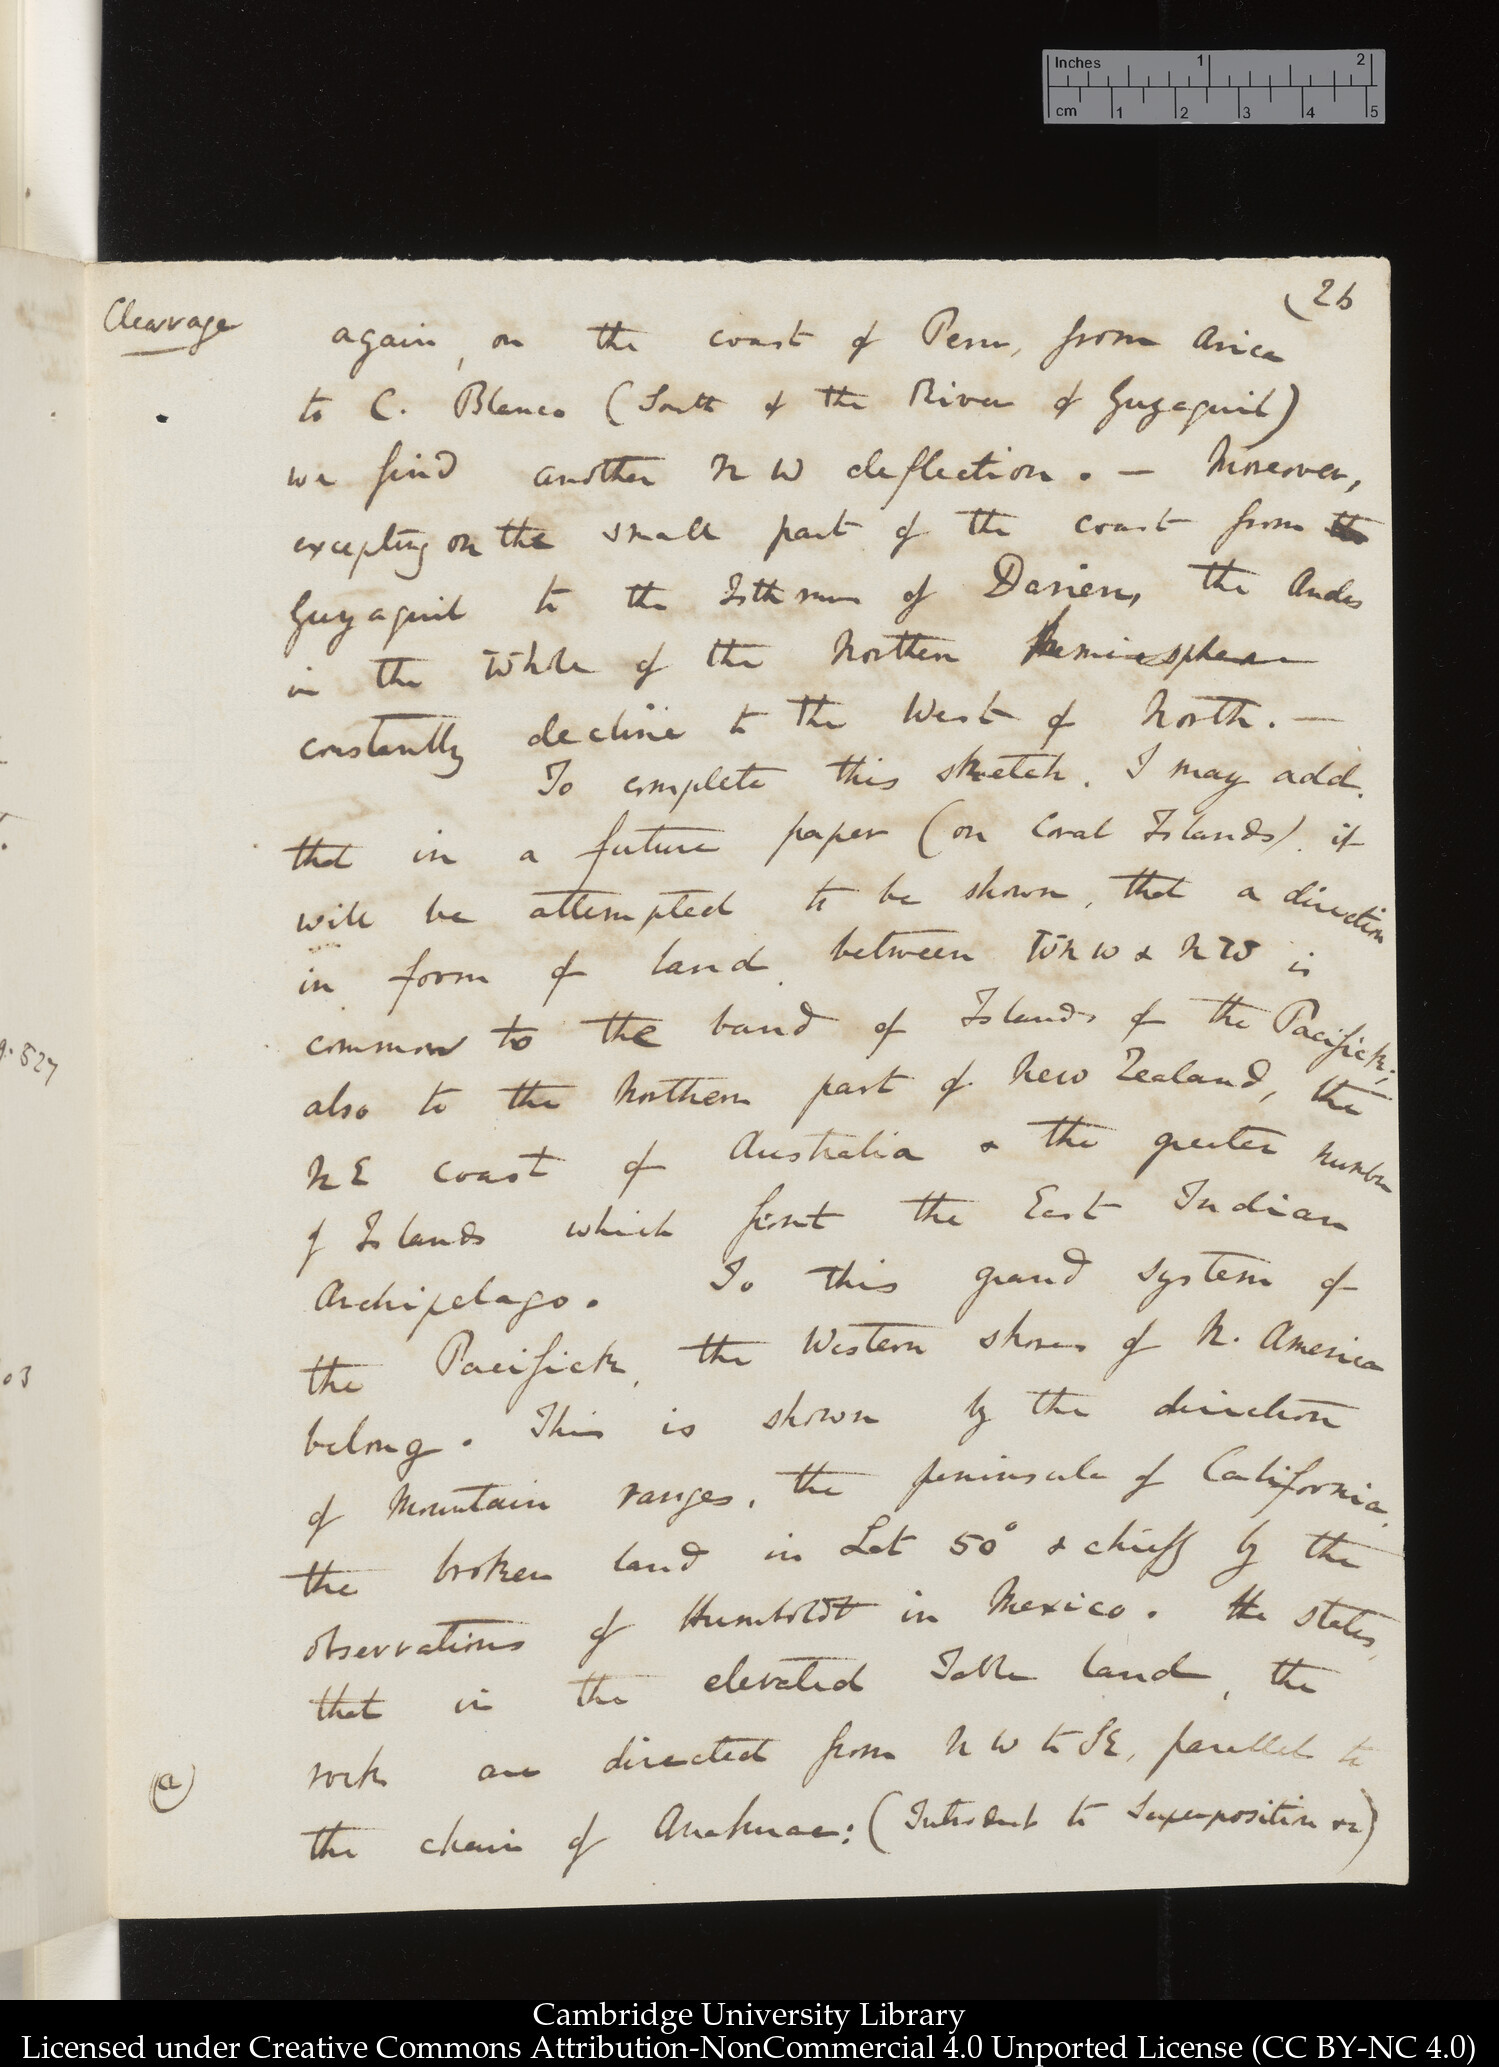 Inches 1 2
cm 1 2 3 4 5
26
Cleavage
again, on the coast of Peru, from Arica
to C. Blanco (South of the River of Guyaquil)
we find another NW deflection. — Moreover,
excepting on the small part of the coast from the
Guyaquil to the Isthmus of Darien, the Andes
in the whole of the Northern Hemisphere
constantly decline to the West of North. —
To complete this sketch, I may add,
that in a future paper (on Coral Islands), it
will be attempted to be shown, that a direction
in form of land, between WNW & NW is
common to the band of Islands of the Pacifick;
also to the Northern part of New Zealand, the
NE coast of Australia & the greater number
of Islands which front the East Indian
Archipelago. To this grand system of
the Pacifick, the Western shores of N. America
belong. This is shown by the direction
of Mountain ranges, the peninsula of California,
the broken land in Lat 50° & chiefly by the
observations of Humboldt in Mexico. He states,
that in the elevated Table land, the
rocks are directed from NW to SE, parallel to
(a)
the chain of Anahuac: (Introduct to Superposition &c)
g. 527
03
Cambridge University Library
Licensed under Creative Commons Attribution-NonCommercial 4.0 Unported License (CC BY-NC 4.0)